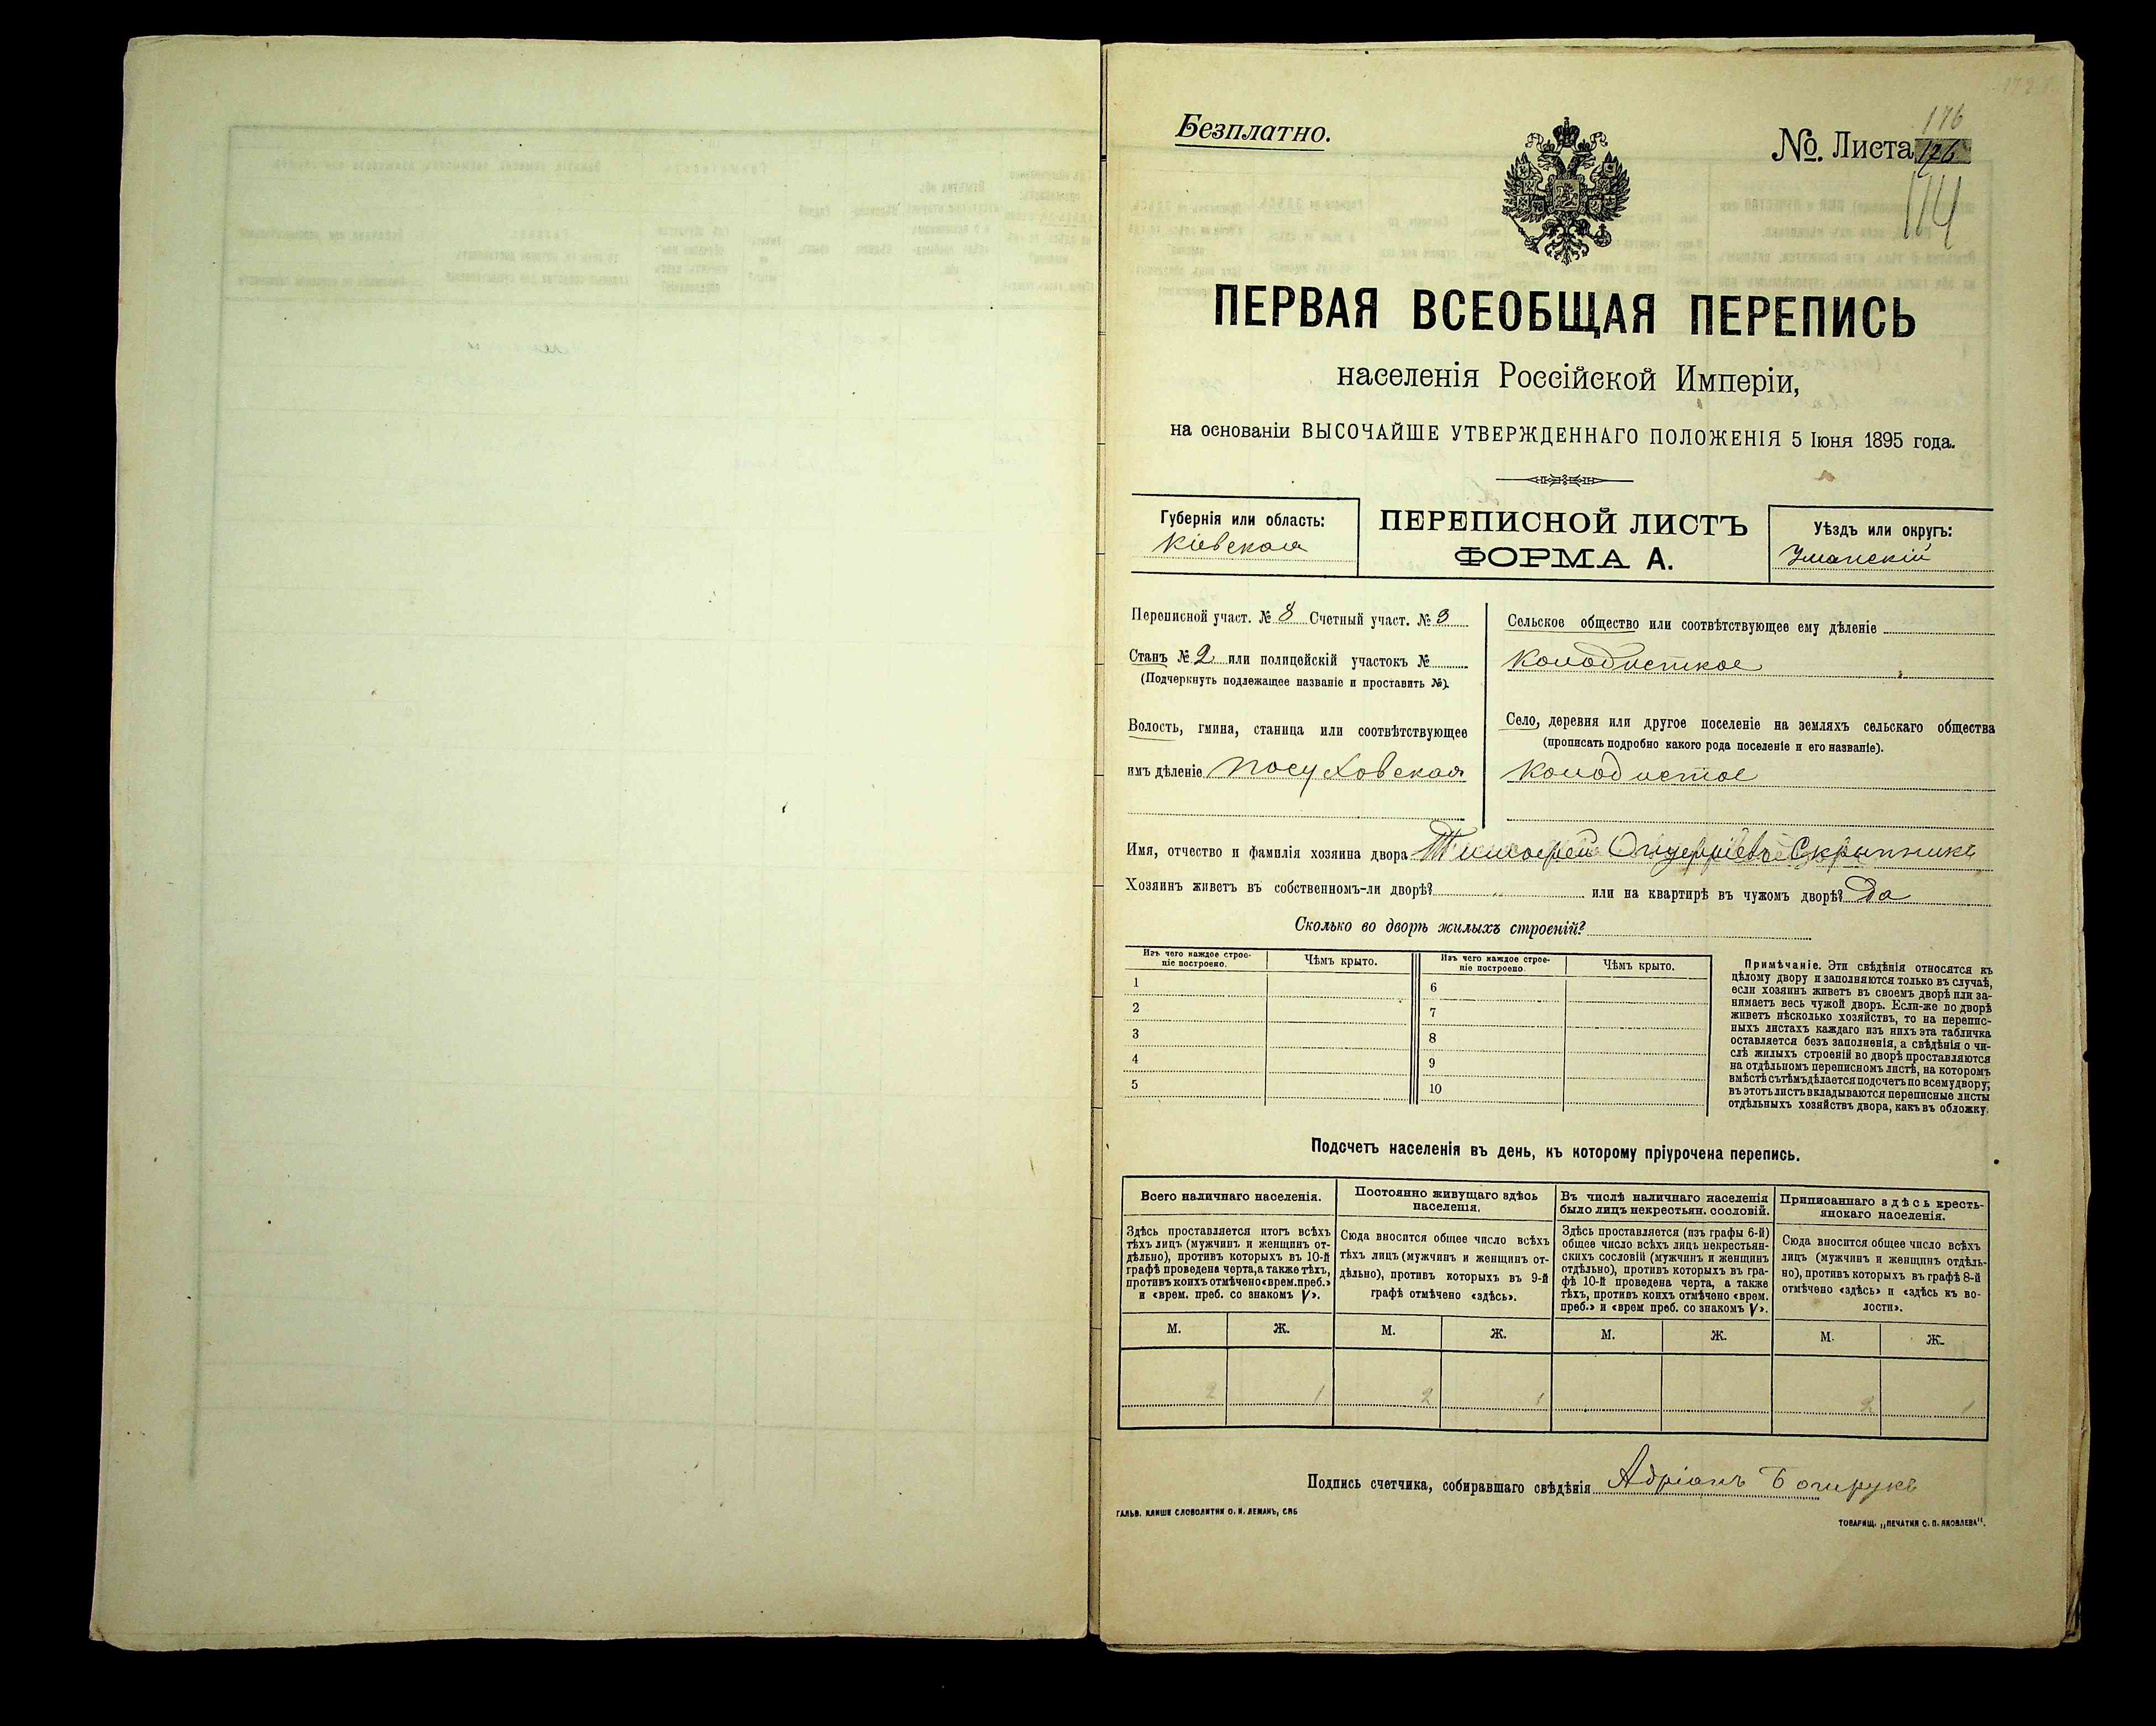 Безплатно.
176
№. Листа 176
114
ПЕРВАЯ ВСЕОБЩАЯ ПЕРЕПИСЬ
населенія Россійской Имперіи,
на основаніи ВЫСОЧАЙШЕ УТВЕРЖДЕННАГО ПОЛОЖЕНІЯ 5 Іюня 1895 года.
Губернія или область:
Кіевская
ПЕРЕПИСНОЙ ЛИСТЪ
ФОРМА А.
Уѣздъ или округъ:
Уманскій
Переписной участ. № 8 Счетный участ. № 3
Станъ № 2 или полицейскій участокъ №
(Подчеркнуть подлежащее названіе и проставить №).
Волость, гмина, станица или соотвѣтствующее
имъ дѣленіе Посуховская
Сельское общество или соотвѣтствующее ему дѣленіе
Колодисткое
Село, деревня или другое поселеніе на земляхъ сельскаго общества
(прописать подробно какого рода поселеніе и его названіе).
Колодистое
Имя, отчество и фамилія хозяина двора Тимофей Скрыпникъ
Хозяинъ живетъ въ собственномъ-ли дворѣ? или на квартирѣ въ чужомъ дворѣ? Да
Сколько во дворѣ жилыхъ строеній?
Изъ чего каждое строе-
ніе построено.
Чѣмъ крыто.
Изъ чего каждое строе-
ніе построено.
Чѣмъ крыто.
1
2
3
4
5
6
7
8
9
10
Примѣчаніе. Эти свѣдѣнія относятся къ
цѣлому двору и заполняются только въ случаѣ,
если хозяинъ живетъ въ своемъ дворѣ или за-
нимаетъ весь чужой дворъ. Если-же во дворѣ
живетъ нѣсколько хозяйствъ, то на перепис-
ныхъ листахъ каждаго изъ нихъ эта табличка
оставляется безъ заполненія, а свѣдѣнія о чи-
слѣ жилыхъ строеній во дворѣ проставляются
на отдѣльномъ переписномъ листѣ, на которомъ
вмѣстѣ съ тѣмъ дѣлается подсчетъ по всему двору;
въ этотъ листъ вкладываются переписные листы
отдѣльныхъ хозяйствъ двора, какъ въ обложку.
Подсчетъ населенія въ день, къ которому пріурочена перепись.
Всего наличнаго населенія.
Здѣсь проставляется итогъ всѣхъ
тѣхъ лицъ (мужчинъ и женщинъ от-
дѣльно), противъ которыхъ въ 10-й
графѣ проведена черта, а также тѣхъ,
противъ коихъ отмѣчено «врем. преб.»
и «врем. преб. со знакомъ V».
Постоянно живущаго здѣсь
населенія.
Сюда вносится общее число всѣхъ
тѣхъ лицъ (мужчинъ и женщинъ от-
дѣльно), противъ которыхъ въ 9-й
графѣ отмѣчено «здѣсь».
Въ числѣ наличнаго населенія
было лицъ некрестьян. сословій.
Здѣсь проставляется (изъ графы 6-й)
общее число всѣхъ лицъ некрестьян-
скихъ сословій (мужчинъ и женщинъ
отдѣльно), противъ которыхъ въ гра-
фѣ 10-й проведена черта, а также
тѣхъ, противъ коихъ отмѣчено «врем.
преб.» и «врем преб. со знакомъ V».
Приписаннаго здѣсь кресть-
янскаго населенія.
Сюда вносится общее число всѣхъ
лицъ (мужчинъ и женщинъ отдѣль-
но), противъ которыхъ въ графѣ 8-й
отмѣчено «здѣсь» и «здѣсь къ во-
лости».
М. Ж. М. Ж. М. Ж. М. Ж.
2 1 2 1 2 1
Подпись счетчика, собиравшаго свѣдѣнія Адріанъ
ГАЛЬВ. КЛИШЕ СЛОВОЛИТНИ О. И. ЛЕМАНЪ, СПБ
ТОВАРИЩ. „ПЕЧАТНЯ С. П. ЯКОВЛЕВА".